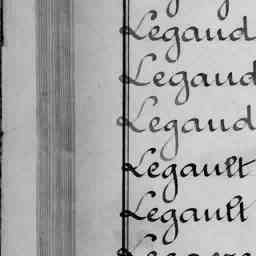 Legaud
Legaud
Legaud
Legault
Legault